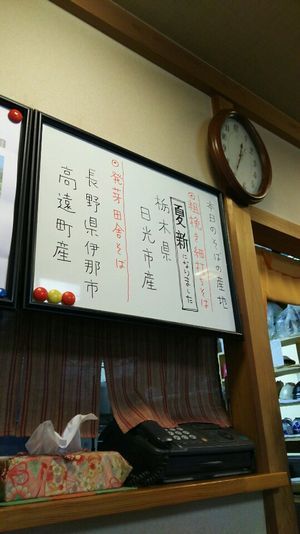 今日のそばの産地
◎粗挽き細打ちそば
夏新になりました
栃木県
日光市産
◎発芽田舎そば
長野県伊那市
高遠町産